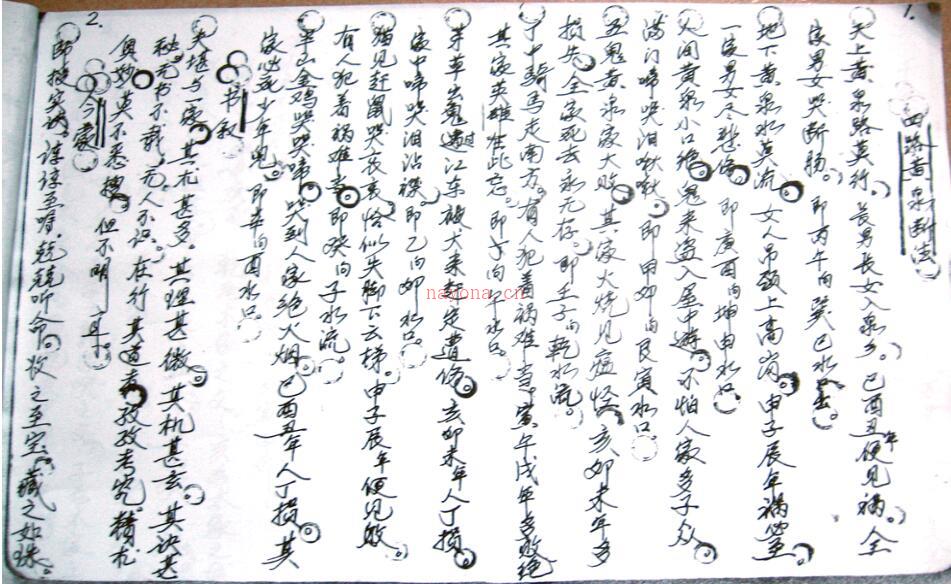 1.
四路黄泉断法
天上黄泉路莫行。长男长女入泉乡。巳酉丑年便见祸。全
家男女哭断肠。即丙午向巽巳水出。
地下黄泉水莫流 女人吊颈上高岗。申子辰年祸宜
一家男女尽悲伤 即庚酉向坤申水口
人间黄泉小口绝 鬼来盗入屋中游。不怕人家多子众
满门啼哭泪啾啾 即甲卯向艮寅水口
五鬼黄泉家大败 其家火烧见瘟怪 亥卯未年多
损失 全家死去永无存。即壬子向乾水流。
丁中骑马走南方。有人犯着祸难当。寅午戌年多败绝
其家英雄在此亡。即丁向午水口。
茅草出鬼过江东 被犬来 遭伤。亥卯未年人丁损
家中啼哭泪沾襟 即乙向卯水口
猫见赶鼠哭哀哀 恰似失脚下云梯。申子辰年便见败
有人犯着祸难当 即癸向子水流。
半山金鸡哭哭啼 哭到人家绝火烟 巳酉丑年人丁损 其
家必死少年鬼。即辛向酉水口
2.
书叙
夫堪与一家 其术甚多。其理甚微 其机甚玄 其诀甚
秘。无书不载。无人不识。在行其道者 孜孜考究。精扎
奥妙莫不悉搜 但不明
今蒙
即授实诀。谆谆至嘱 兢兢听命 收之至宝 藏之如珠。
nayona.cn